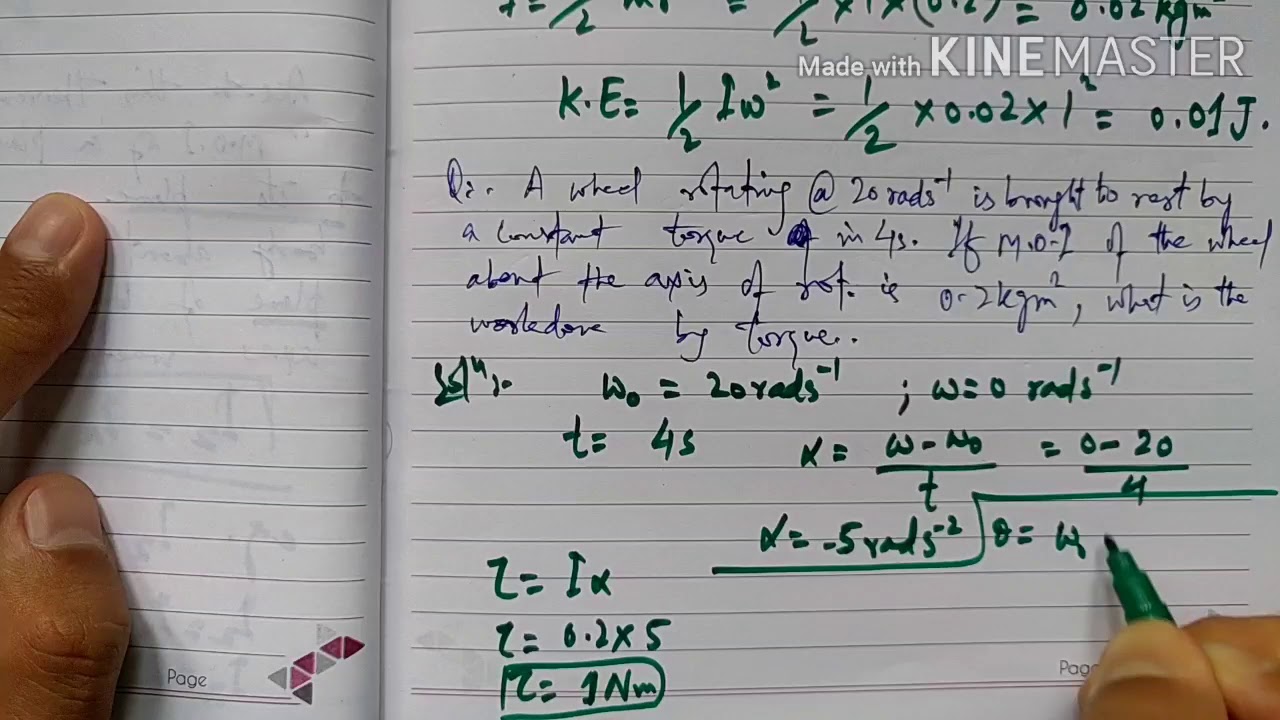 I = 1/2 mr² = 1/2 × 1 × (0.2)² = 0.02 kgm²
Made with KINEMASTER
K.E = 1/2 Iω² = 1/2 × 0.02 × 1² = 0.01 J.
Q:. A wheel rotating @ 20 rads⁻¹ is brought to rest by
a constant torque in 4s. If M.O.I of the wheel
about the axis of rot. is 0.2 kgm², what is the
workdone by torque.
Solⁿ:- ω₀ = 20 rads⁻¹ ; ω = 0 rads⁻¹
t = 4s α = ω - ω₀ / t = 0 - 20 / 4
α = -5 rads⁻² θ = ω
τ = Iα
τ = 0.2 × 5
τ = 1 Nm
Page
Pag